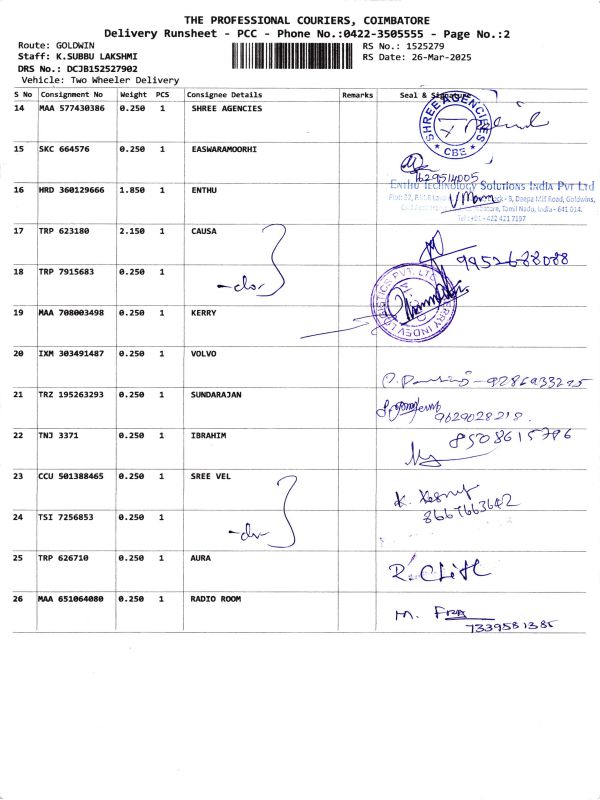 THE PROFESSIONAL COURIERS, COIMBATORE
Delivery Runsheet - PCC - Phone No.:0422-3505555 - Page No.:2
Route: GOLDWIN
RS No.: 1525279
Staff: K.SUBBU LAKSHMI
RS Date: 26-Mar-2025
DRS No.: DCJB152527902
Vehicle: Two Wheeler Delivery
S No Consignment No Weight PCS Consignee Details Remarks Seal & Signature
14 MAA 577430386 0.250 1 SHREE AGENCIES
SHREE AGENCIES
* CBE *
15 SKC 664576 0.250 1 EASWARAMOORHI
7629514005
16 HRD 360129666 1.850 1 ENTHU
ENTHU TECHNOLOGY SOLUTIONS INDIA PVT LTD
Block - B, Deepa Mill Road, Goldwins,
Coimbatore, Tamil Nadu, India - 641 014.
Tel : +91 - 422 421 7197
17 TRP 623180 2.150 1 CAUSA
9952688088
18 TRP 7915683 0.250 1
-do-
19 MAA 708003498 0.250 1 KERRY
KERRY INDEV LOGISTICS PVT. LTD
20 IXM 303491487 0.250 1 VOLVO
21 TRZ 195263293 0.250 1 SUNDARAJAN
9629028218.
22 TNJ 3371 0.250 1 IBRAHIM
8508615786
23 CCU 501388465 0.250 1 SREE VEL
8667663642
24 TSI 7256853 0.250 1
-do-
25 TRP 626710 0.250 1 AURA
26 MAA 651064080 0.250 1 RADIO ROOM